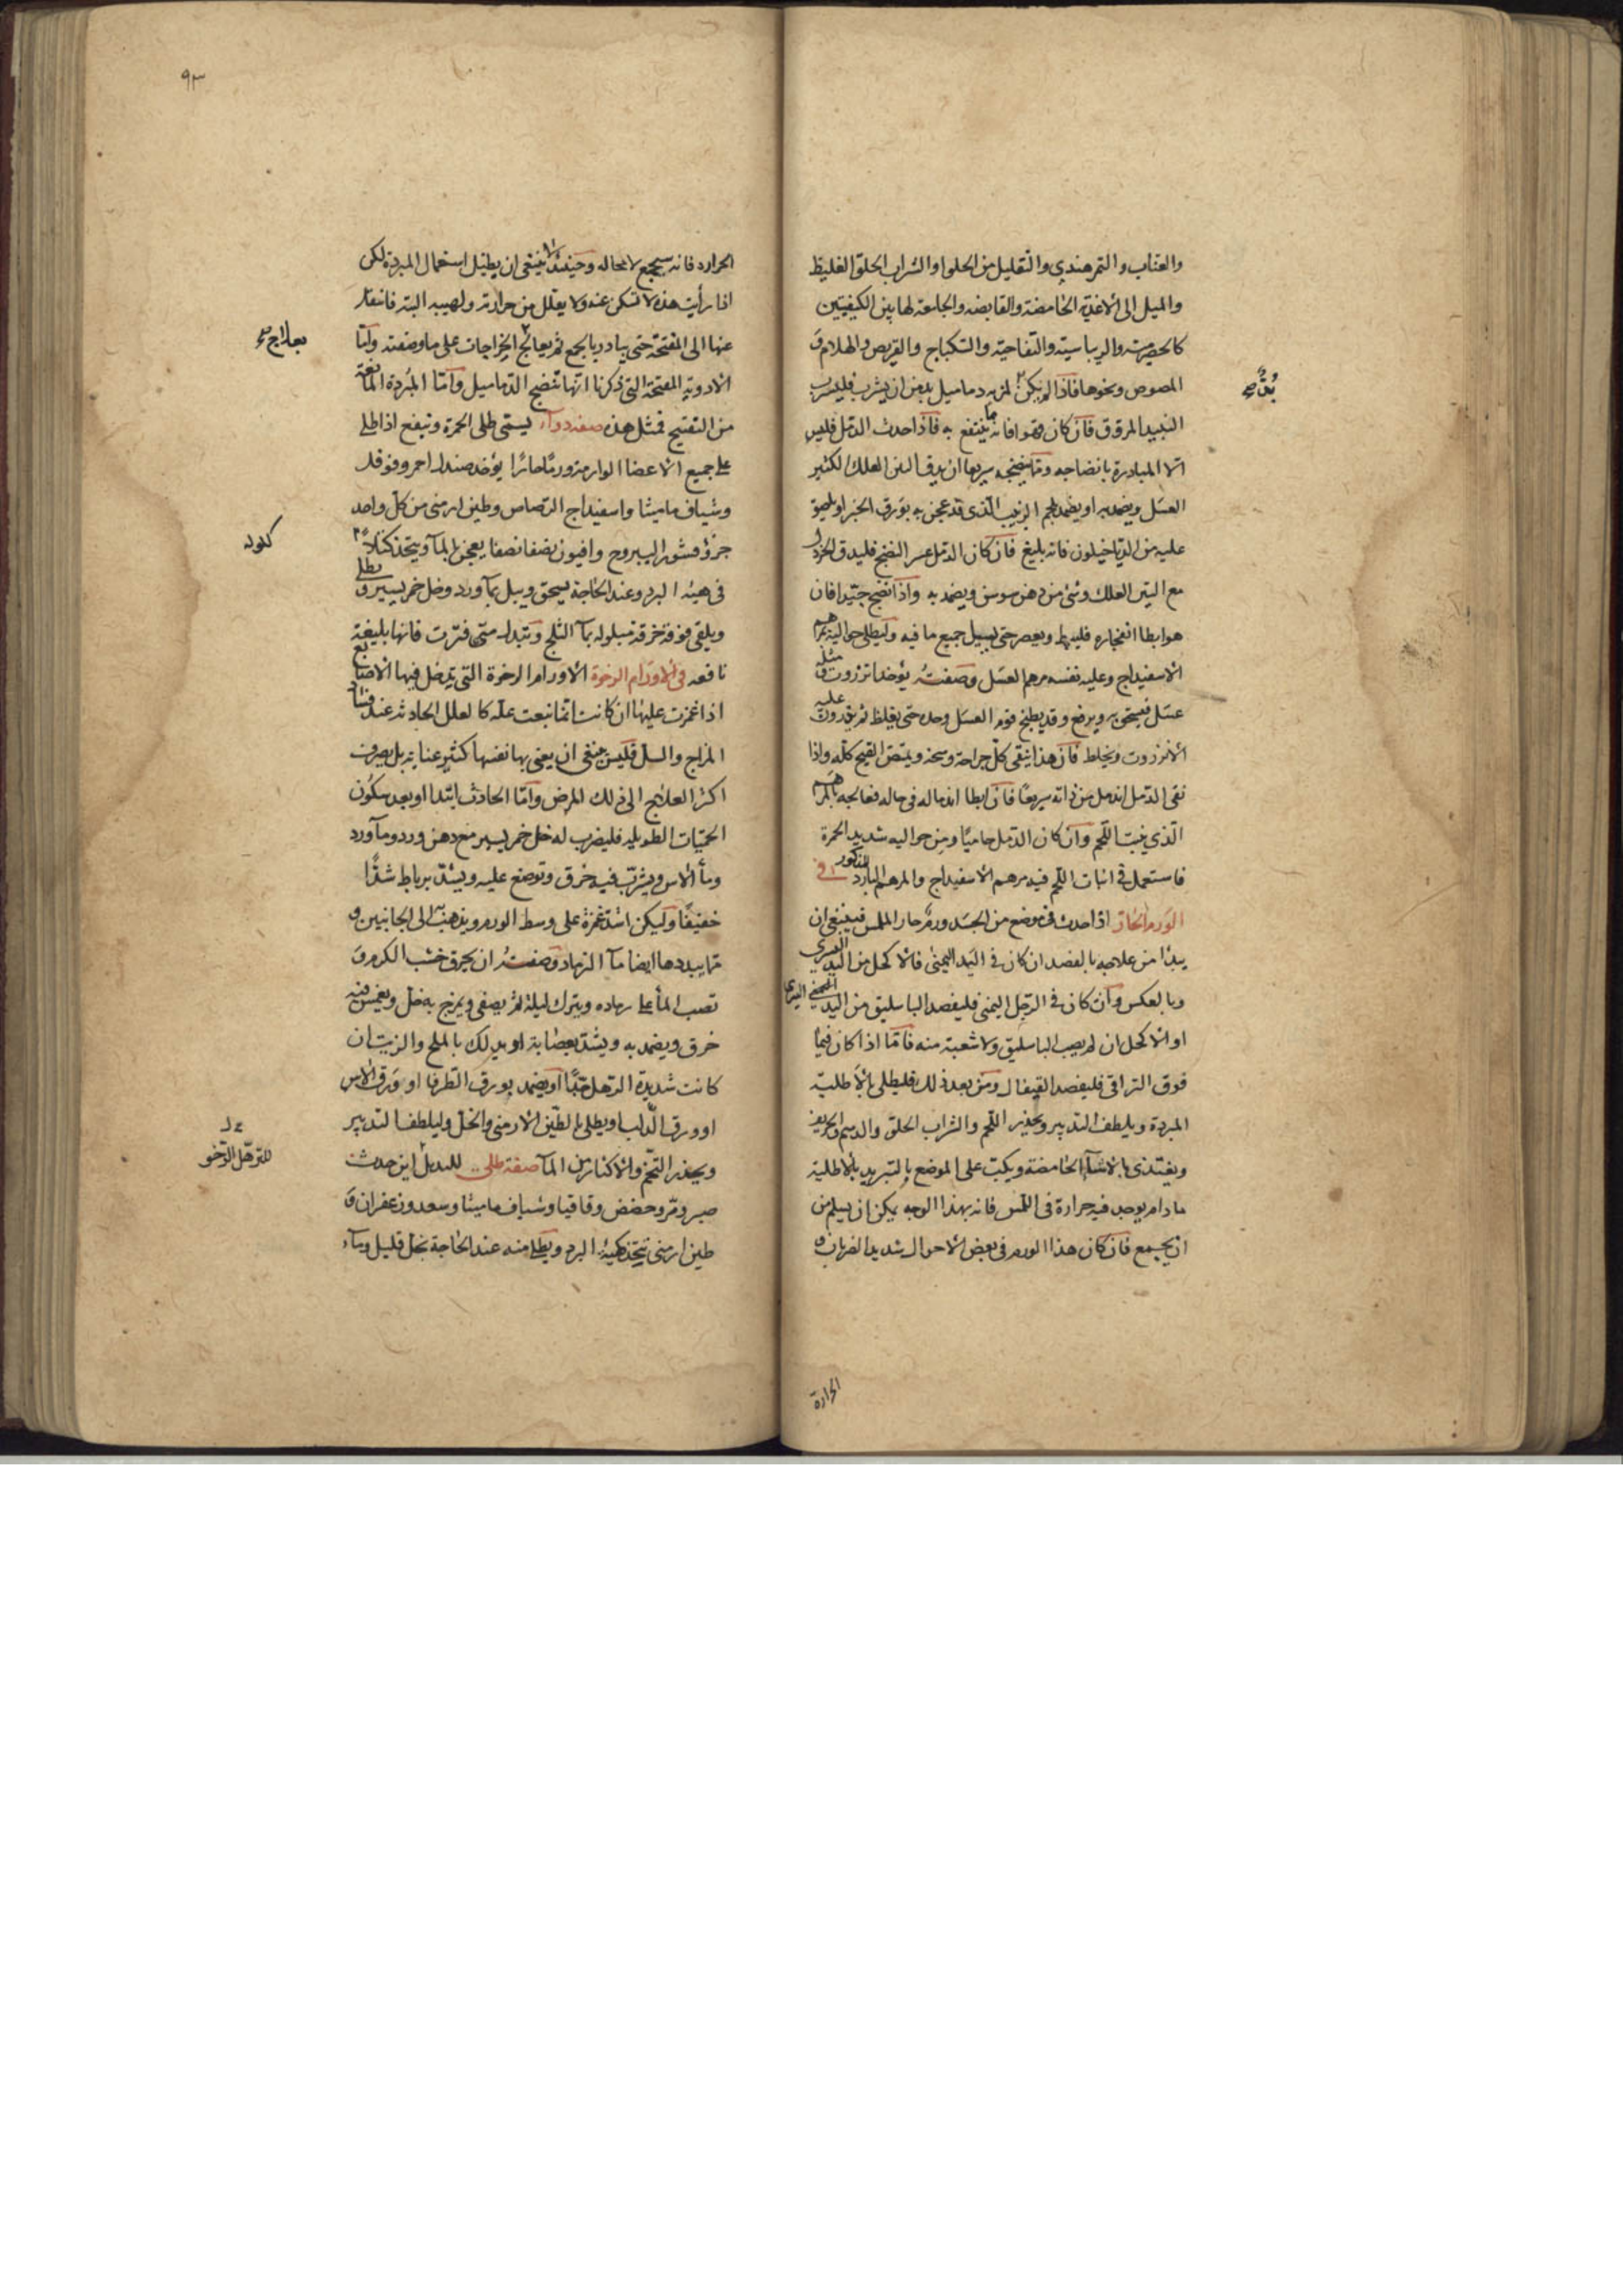 والعناب والتمر هندي والتقليل من الحلوا والشراب الحلو الغليظ
والميل الى الاغذية الحامضة والقابضه والجامعة لها بين الكيفيتين
كالحصرمية والريباسية والتفاحية والسكباج والقريص والهلام و
المصوص ونحوها فاذا لم يكن لمن به دماميل بد من ان يشرب فليشرب
بدٌ صح
النبيد المروق فان كان قهوا فانه مما ينتفع به فاذا حدث الدمل فليس
الا المبادرة بانضاجه ومما ينضجه سريعا ان يدق التين العلك الكثير
العسل ويضمد به او يضمد بلحم الزبيب الذي قد عجن به بورق الخبز او يلصق
عليه من الدياخيلون فانه بليغ فان كان الدمل عسر النضج فليدق الخردل
مع التين العلك وشئ من دهن سوسن ويضمد به واذا نضج جيدا فان
هو ابطا انفجاره فليبط ويعصر حتى يسيل جميع ما فيه وليطلى حواليه بمرهم
الاسفيداج وعليه نفسه مرهم العسل وصفته يؤخذ انزروت و مثله
عسل فيسحق به ويرفع وقد يطبخ قوم العسل وحده حتى يغلظ ثم يذرون عليه
الانزروت ويخلط فان هذا ينقى كل جراحة وسخة ويمتص القيح كله واذا
نقى الدمل اندمل من ذاته سريعا فان ابطا اندماله في حاله فعالجه بالمرهم
الذي ينبت اللحم وان كان الدمل حاميا ومن حواليه شديد الحمرة
فاستعمل في انبات اللحم فيه مرهم الاسفيداج والمرهم البارد المذكور في
الورم الحار اذا حدث في موضع من الجسد ورم حار الملمس فينبغي ان
يبدأ من علاجه بالفصد ان كان في اليد اليمنى فالاكحل من اليد اليسرى
وبالعكس وان كان في الرجل اليمنى فليفصد الباسليق من اليد اليمنى اليسرى
او الاكحل ان لم يصب الباسليق ولا شعبة منه فاما اذا كان فيما
فوق التراقي فليفصد القيفال ومن بعد ذلك فليطلى بالاطلية
المبردة ويلطف التدبير ويحذر اللحم والشراب الحلو والدسم والحريف
ويغتذى بالاشيآ الحامضة ويكب على الموضع بالتبريد بالاطلية
ما دام يوجد فيه حرارة في اللمس فانه بهذا الوجه يمكن ان يسلم من
ان يجمع فان كان هذا الورم في بعض الاحوال شديد الضربان و
الحرارة
٩٣
الحرارة فانه سيجمع لا محاله وحينئذ لا ينبغى ان يطيل استعمال المبردة لكن
اذا رأيت هذه لا تسكن عنه ولا يقلل من حرارته ولهيبه البته فانتقل
عنها الى المفتحة حتى يبادر بالجمع ثم يعالج الخراجات على ما وصفته واما
بعلاج صح
الادوية المفتحة التى ذكرنا انها تنضج الدماميل واما المبردة المانعة
من التفتيح فمثل هذه صفه دوآء يسمى طلى الحمرة وينفع اذا طلى
على جميع الاعضا الوارمة ورما حارا يؤخذ صندل احمر وفوفل
وشياف ماميثا واسفيداج الرصاص وطين ارمنى من كل واحد
جزؤ قشور اليبروح وافيون نصفا نصفا يعجن بالمآ ويتخذ كتلا
كلوله
في هيئه البرد وعند الحاجة يسحق ويبل بمآ ورد وخل خمر يسير ويطلى
ويلقى فوقه خرقة مبلوله بمآ الثلج وتبدل متى فترت فانها بليغة
نافعه في الاورام الرخوة الاورام الرخوة التى يدخل فيها الاصابع
اذا غمزت عليها ان كانت انما تبعت علة كالعلل الحادثه عند فساد
المزاج والسل فليس ينبغى ان يعنى بها نفسها كثير عناية بل يصرف
اكثر العلاج الى ذلك المرض واما الحادث ابتدا او بعد سكون
الحميات الطويله فليضرب له خل خمر يسير مع دهن ورد ومآ ورد
ومآ الاس ويشرب فيه خرق وتوضع عليه ويشد برباط شدا
خفيفا وليكن اشد غمزة على وسط الورم ويذهب به الى الجانبين و
مما يبددها ايضا مآ الرماد وصفته ان يحرق خشب الكرم و
تصب المآ على رماده ويترك ليلة ثم يصفى ويمزج به خل ويغمس فيه
خرق ويضمد به ويشد بعصابة او يدلك بالملح والزيت ان
كانت شديدة الترهل جدا او يضمد بورق الطرفا او ورق الاس
او ورق الدلب او يطلى بالطين الارمنى والخل وليلطف التدبير
ويحذر التخم والاكثار من المآ صفة طلى للبدن اين حدث
للترهل الرخو
صبر ومر وحضض وقاقيا وشياف ماميثا وسعد وزعفران و
طين ارمنى يتخذ كهيئة البرد ويطلى منه عند الحاجة بخل قليل ومآء